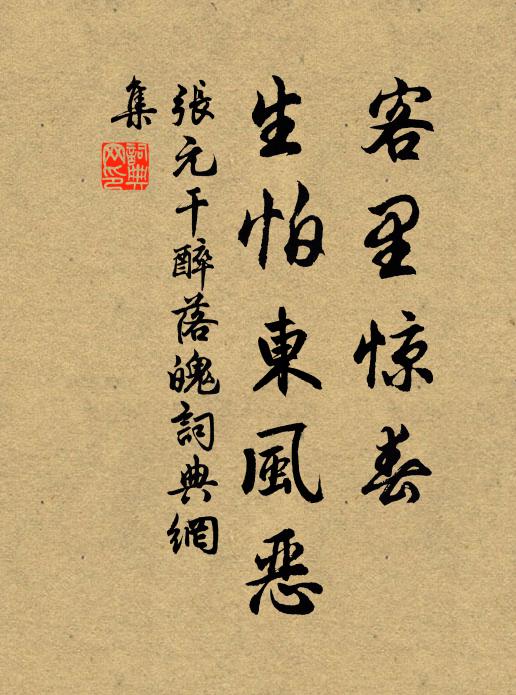 客里惊春
生怕東風恶
張元干醉落魄詞典網
集
詞典網印